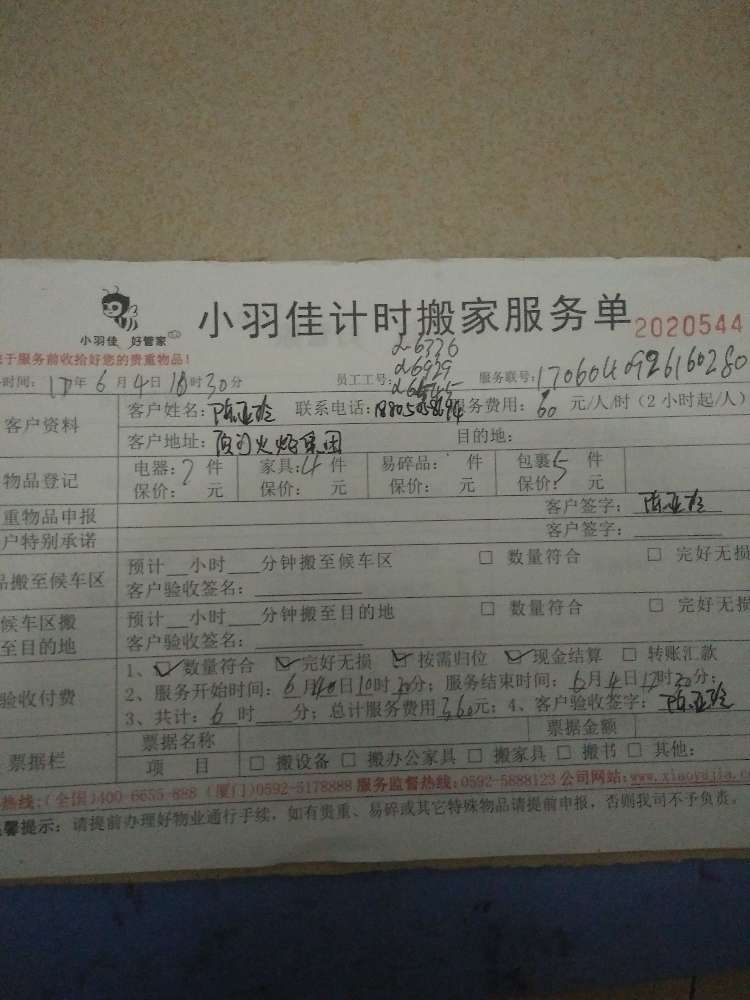 小羽佳 好管家
小羽佳计时搬家服务单 2020544
于服务前收拾好您的贵重物品!
2-6336
2-6929
时间: 17年6月4日10时30分 员工工号: 服务联号: 1706040926160280
客户资料 客户姓名: 陈亚玲 联系电话: 服务费用: 60 元/人/时(2小时起/人)
客户地址: 厦门火炬集团 目的地:
物品登记 电器: 7 件 家具: 4 件 易碎品: 件 包裹 5 件
保价: 元 保价: 元 保价: 元 保价: 元
重物品申报 客户签字: 陈亚玲
户特别承诺 客户签字:
品搬至候车区 预计 小时 分钟搬至候车区 □ 数量符合 □ 完好无损
客户验收签名:
候车区搬至目的地 预计 小时 分钟搬至目的地 □ 数量符合 □ 完好无损
客户验收签名:
验收付费 1、☑数量符合 ☑完好无损 ☑按需归位 ☑现金结算 □ 转账汇款
2、服务开始时间: 6月4日10时30分; 服务结束时间: 6月4日17时30分;
3、共计: 6 时 分; 总计服务费用360元; 4、客户验收签字: 陈亚玲
票据栏 票据名称 票据金额
项 目 □ 搬设备 □ 搬办公家具 □ 搬家具 □ 搬书 □ 其他:
热线:(全国)400-6655-888 (厦门)0592-5178888 服务监督热线:0592-5888123 公司网站:www.xiaoyujia.co
馨提示: 请提前办理好物业通行手续, 如有贵重、易碎或其它特殊物品请提前申报, 否则我司不予负责。